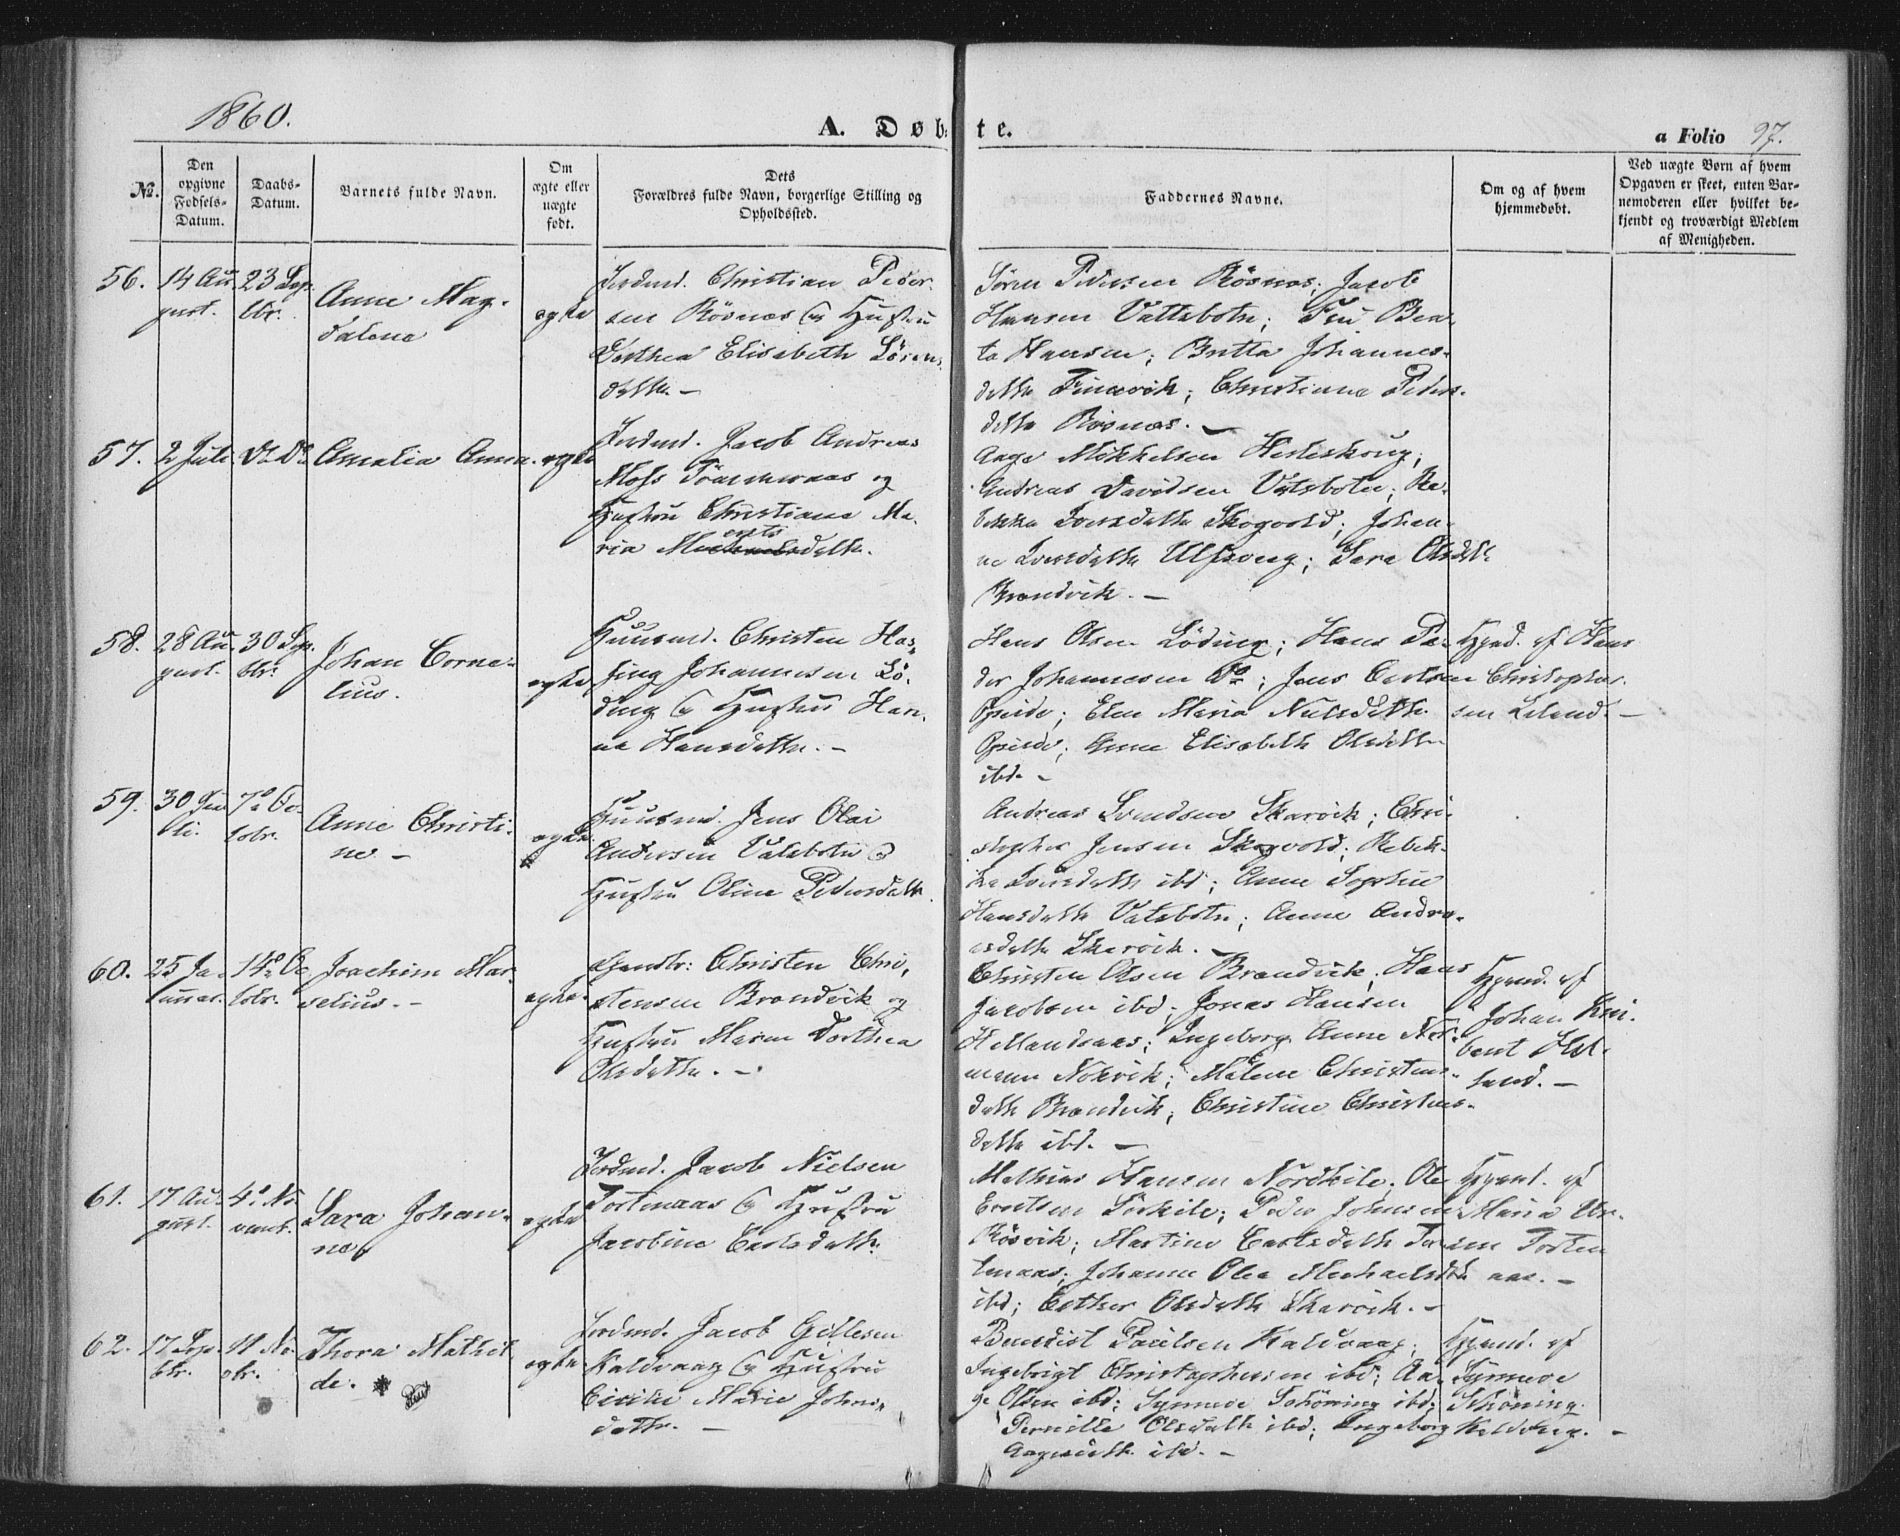 1860.
A. Døbte.
a Folio 97.
No.
Den opgivne Fødsels-Datum.
Daabs-Datum.
Barnets fulde Navn.
Om ægte eller uægte født.
Dets Forældres fulde Navn, borgerlige Stilling og Opholdssted.
Faddernes Navne.
Om og af hvem hjemmedøbt.
Ved uægte Børn af hvem Opgaven er skeet, enten Barnemoderen eller hvilket bekjendt og troværdigt Medlem af Menigheden.
56. 14 Au- 23 Sep-
gust. tbr.
Anne Mag-
dalena
ægte
Jordmd. Christian Peder-
sen Rösnæs og Hustru
Dorthea Elisabeth Sörens-
datter. –
Sören Pedersen Rösnæs; Jacob
Hansen Vattsbotn; Fru Bea-
ta Hansen; Britta Johannes-
datter Finnvik; Christiana Peders-
datter Rösnæs. –
57. 2 Juli. Do Do Amalia Anna. ægte
Jordmd. Jacob Andreas
Mohs og
Hustru Christiana Ma-
ria datter.
Aage Mikkelsen
Andreas Davidsen Vatsboten; Re-
bekka Iversdatter Skogvold; Johan-
ne Iversdatter Ulfsvog; Sara Olsdatt.
Brandvik. –
58. 28 Au- 30 Sep-
gust. tbr.
Johan Corne-
lius.
ægte
Huusmd. Christen Has-
sing Johannesen Lö-
ding og Hustru Han-
na Hansdatter. –
Hans Olsen Löding; Hans Pe-
der Johannesen Do; Jens Carlsen
Opeide; Elen Maria Nielsdatter
Opeide; Anne Elisabeth Olsdatter
ibd. –
Hjmd. af Hans
Christopher-
sen Leland. –
59. 30 Ju- 7de Oc-
li. tobr.
Anne Christi-
ne –
ægte
Huusmd. Jens Olai
Andersen Vatsbotn og
Hustru Oline Pedersdatter.
Andreas Svendsen Skarvik; Chri-
stopher Jensen Skogvold; Rebek-
ka Iversdatter ibd; Anne Sophie
Hansdatter Vatsbotn; Anne Andre-
asdatter Skarvik. –
60. 25 Ja- 14de Oc-
nuar. tobr.
Joachim Mar-
selius. –
ægte.
Christen Chri-
stensen Brandvik og
Hustru Maren Dorthea
Olsdatter. –
Christen Olsen Brandvik; Hans
Jacobsen ibd; Jonas Hansen
Hellandsaas; Ingeborg Anne Nor-
mann Nordvik; Malene Christens-
datt. Brandvik; Christine Christens-
datter ibd. –
Hjmd. af
Johan
61. 17 Au- 4de No-
gust. vembr.
Sara Johan-
ne
ægte
Jordmd. Jacob Nielsen
Tortenaas og Hustru
Jacobine Carlsdatter.
Mathias Hansen Nordkile; Ole
Evertsen Sörkile; Peder Johnsen
Rösvik; Martine Carlsdatter Tor-
tenaas; Johanne Olea Michaelsdtr.
ibd; Esther Olsdatter Skarvik. –
Hjmd. af
Maria
sen Torten-
aas. –
62. 17 Sep- 11 No-
tbr. vbr.
Thora Mathil-
de.
ægte
Jordmd. Jacob Gillesen
Kaldvaag og Hustru
Cicilie Marie Johns-
datter. –
Benedict Paulsen Kaldvaag;
Ingebrigt Christophersen ibd; Aa-
ge Olsen ibd; Synneve Schöning ibd;
Pernille Olsdatt ibd; Ingeborg
Aagesdatt. ibd. –
Hjmd. af
Synneve
Schöning.
Kaldvaag. –